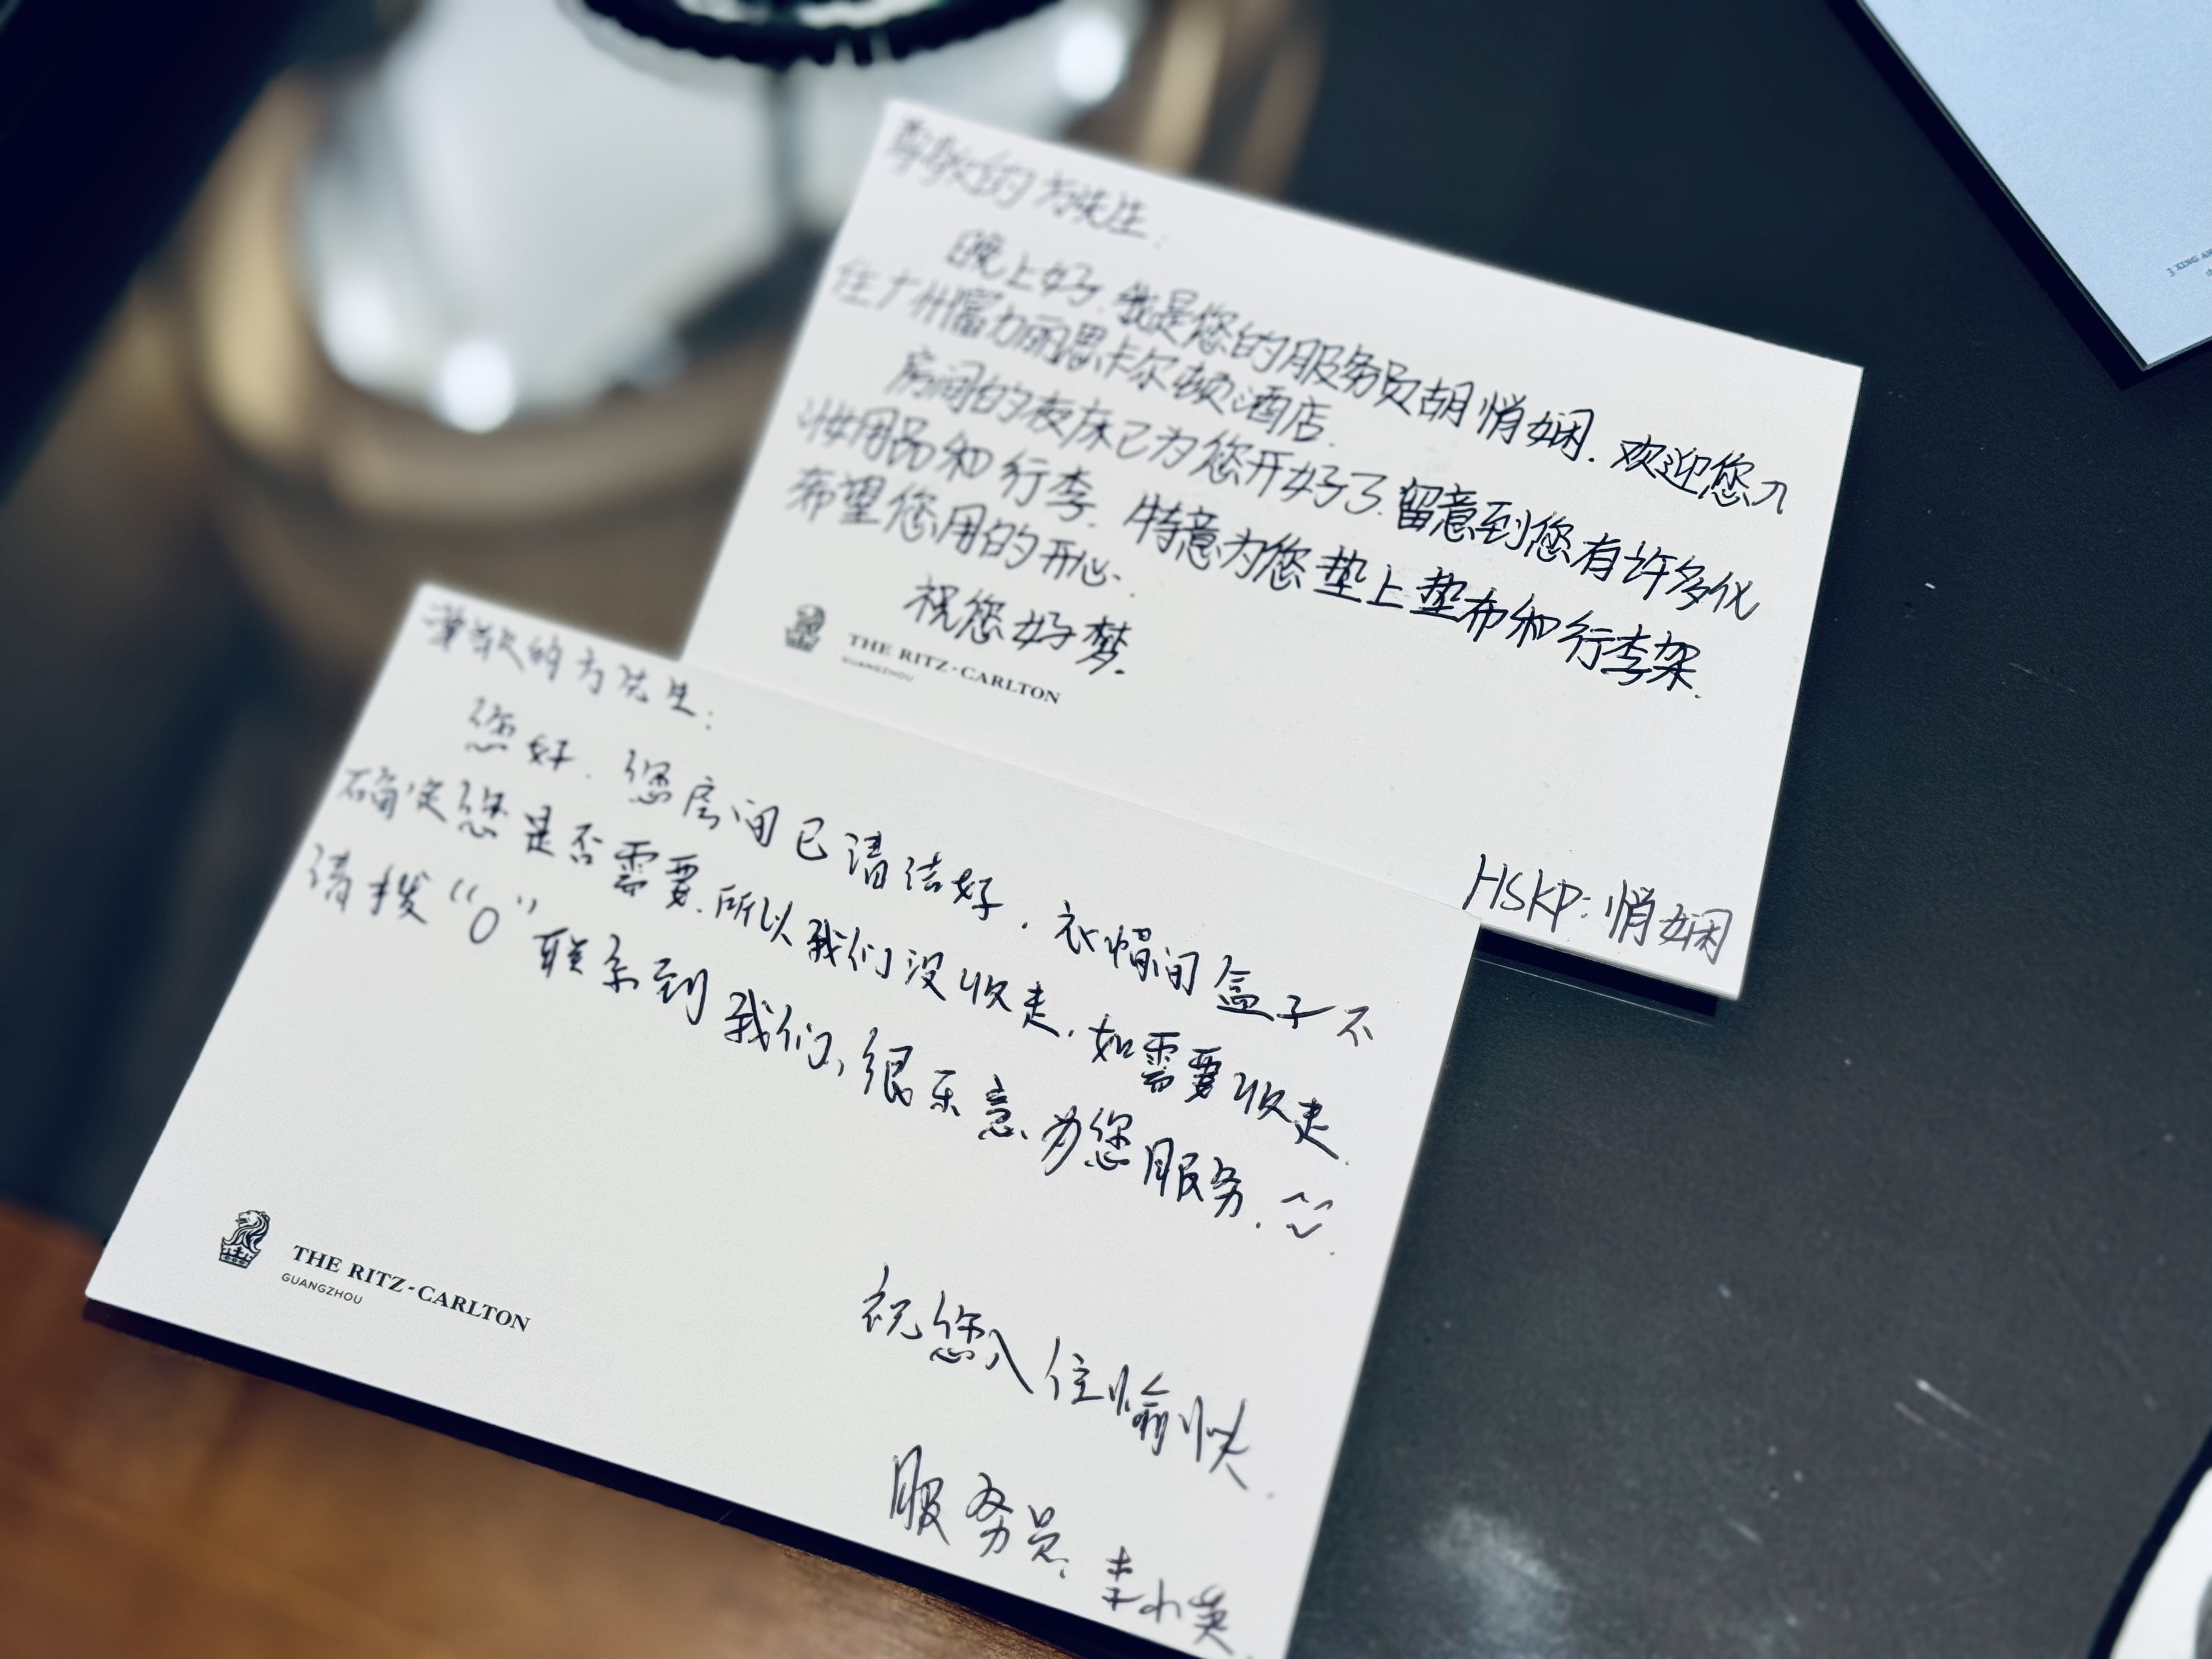 尊敬的方先生：
晚上好.我是您的服务员胡悄娴.欢迎您入
住广州富力丽思卡尔顿酒店.
房间的夜床已为您开好了.留意到您有许多化
妆用品和行李.特意为您垫上垫布和行李架.
希望您用的开心.
祝您好梦.
THE RITZ-CARLTON
GUANGZHOU
HSKP:悄娴
尊敬的方先生：
您好.您房间已清洁好.衣帽间盒子不
确定您是否需要.所以我们没收走.如需要收走.
请拨“0”联系到我们,很乐意为您服务.
THE RITZ-CARLTON
GUANGZHOU
祝您入住愉快.
服务员:小英